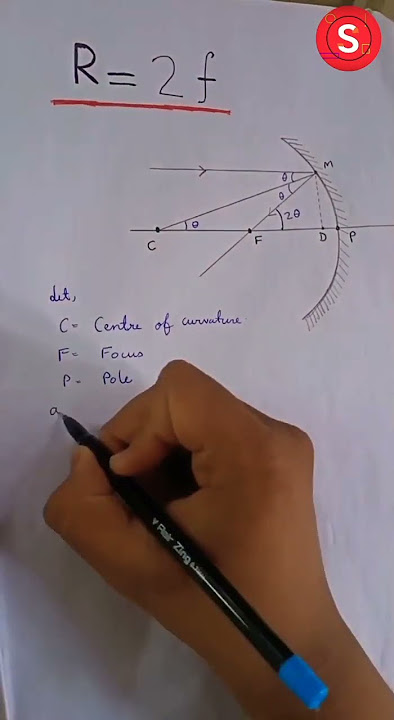 S
R = 2f
M
θ
θ
2θ
θ
C F D P
det,
C = Centre of curvature
F = Focus
P = Pole
a
Flair Zing